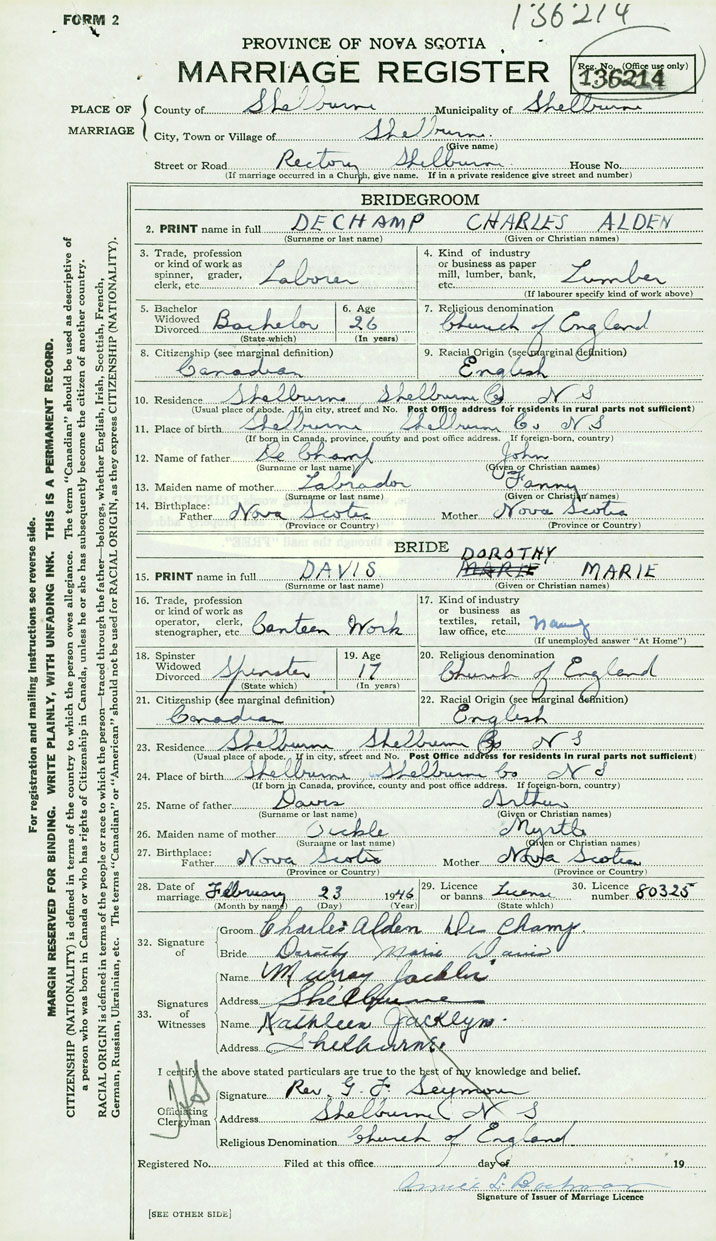 FORM 2
136214
PROVINCE OF NOVA SCOTIA
MARRIAGE REGISTER
Reg. No. (Office use only)
136214
PLACE OF MARRIAGE
County of Shelburne Municipality of Shelburne
City, Town or Village of Shelburne.
(Give name)
Street or Road Rectory Shelburne House No.
(If marriage occurred in a Church, give name. If in a private residence give street and number)
BRIDEGROOM
2. PRINT name in full DECHAMP CHARLES ALDEN
(Surname or last name) (Given or Christian names)
3. Trade, profession or kind of work as spinner, grader, clerk, etc. Laborer
4. Kind of industry or business as paper mill, lumber, bank, etc. Lumber
(If labourer specify kind of work above)
5. Bachelor Widowed Divorced Bachelor
(State which)
6. Age 26
(In years)
7. Religious denomination
Church of England
8. Citizenship (see marginal definition)
Canadian
9. Racial Origin (see marginal definition)
English
10. Residence Shelburne Shelburne Co N S
(Usual place of abode. If in city, street and No. Post Office address for residents in rural parts not sufficient)
11. Place of birth Shelburne Shelburne Co. N S
(If born in Canada, province, county and post office address. If foreign-born, country)
12. Name of father De Champ John
(Surname or last name) (Given or Christian names)
13. Maiden name of mother Labrador Fanny
(Surname or last name) (Given or Christian names)
14. Birthplace: Father Nova Scotia Mother Nova Scotia
(Province or Country) (Province or Country)
BRIDE
DOROTHY
15. PRINT name in full DAVIS MARIE MARIE
(Surname or last name) (Given or Christian names)
16. Trade, profession or kind of work as operator, clerk, stenographer, etc. Canteen Work
17. Kind of industry or business as textiles, retail, law office, etc.
(If unemployed answer "At Home")
18. Spinster Widowed Divorced Spinster
(State which)
19. Age 17
(In years)
20. Religious denomination
Church of England
21. Citizenship (see marginal definition)
Canadian
22. Racial Origin (see marginal definition)
English
23. Residence Shelburne Shelburne Co N S
(Usual place of abode. If in city, street and No. Post Office address for residents in rural parts not sufficient)
24. Place of birth Shelburne Shelburne Co N S
(If born in Canada, province, county and post office address. If foreign-born, country)
25. Name of father Davis Arthur
(Surname or last name) (Given or Christian names)
26. Maiden name of mother Myrtle
(Surname or last name) (Given or Christian names)
27. Birthplace: Father Nova Scotia Mother Nova Scotia
(Province or Country) (Province or Country)
28. Date of marriage February 23 1946
(Month by name) (Day) (Year)
29. Licence or banns. License
(State which)
30. Licence number 80325
32. Signature of
Groom Charles Alden De Champ.
Bride Dorothy Marie Davis
33. Signatures of Witnesses
Name Murray Jacklin
Address Shelburne
Name Kathleen Jacklyn.
Address Shelburne
I certify the above stated particulars are true to the best of my knowledge and belief.
Officiating Clergyman
Signature Rev. G. F. Seymour
Address Shelburne N S
Religious Denomination Church of England
Registered No. Filed at this office day of 19
Annie L. Bachman
Signature of Issuer of Marriage Licence
[SEE OTHER SIDE]
For registration and mailing instructions see reverse side.
MARGIN RESERVED FOR BINDING. WRITE PLAINLY, WITH UNFADING INK. THIS IS A PERMANENT RECORD.
CITIZENSHIP (NATIONALITY) is defined in terms of the country to which the person owes allegiance. The term "Canadian" should be used as descriptive of
a person who was born in Canada or who has rights of Citizenship in Canada, unless he or she has subsequently become the citizen of another country.
RACIAL ORIGIN is defined in terms of the people or race to which the person—traced through the father—belongs, whether English, Irish, Scottish, French,
German, Russian, Ukrainian, etc. The terms "Canadian" or "American" should not be used for RACIAL ORIGIN, as they express CITIZENSHIP (NATIONALITY).